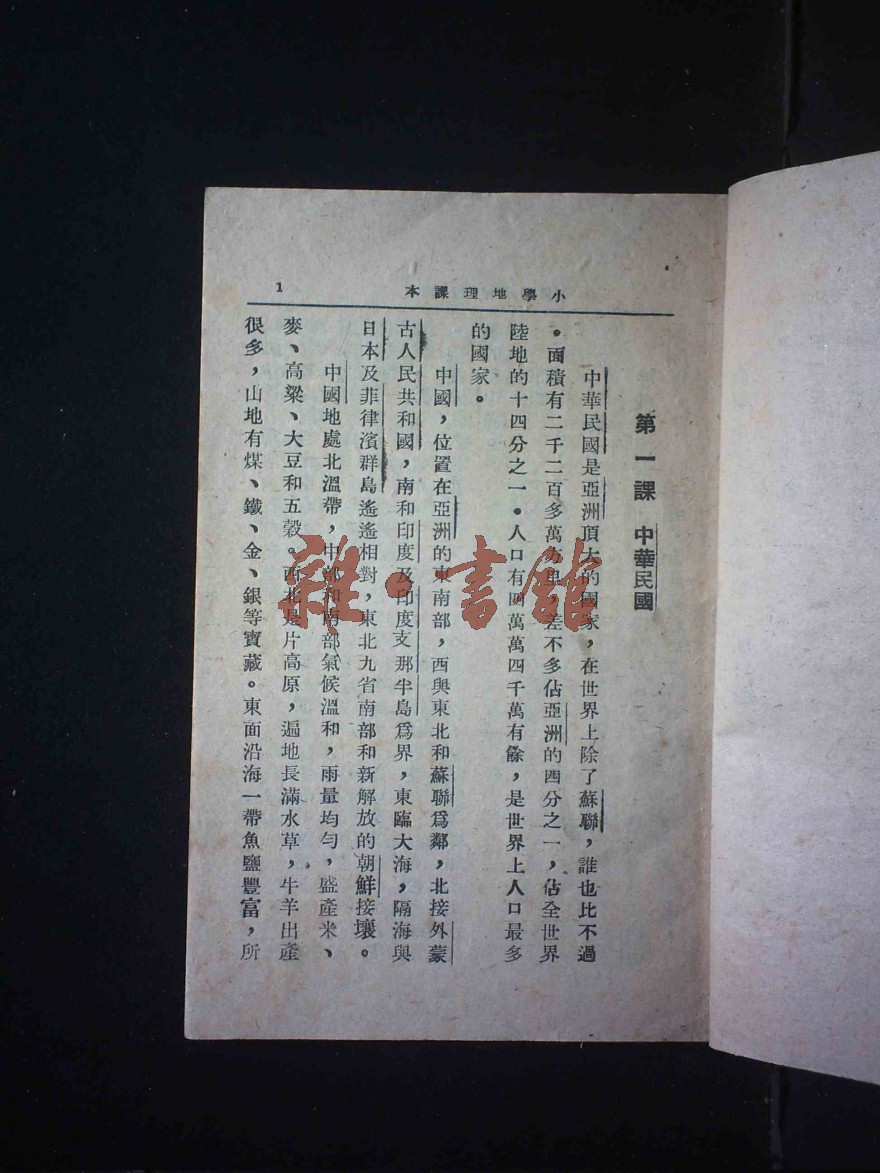 小學地理課本
1
第一課 中華民國
中華民國是亞洲頂大的國家，在世界上除了蘇聯，誰也比不過
。面積有二千二百多萬方里，差不多佔亞洲的四分之一，佔全世界
陸地的十四分之一。人口有四萬萬四千萬有餘，是世界上人口最多
的國家。
中國，位置在亞洲的東南部，西與東北和蘇聯爲鄰，北接外蒙
古人民共和國，南和印度及印度支那半島爲界，東臨大海，隔海與
日本及菲律濱群島遙遙相對，東北九省南部和新解放的朝鮮接壤。
中國地處北溫帶，中部和南部氣候溫和，雨量均勻，盛產米、
麥、高粱、大豆和五穀。西北是片高原，遍地長滿水草，牛羊出產
很多，山地有煤、鐵、金、銀等寶藏。東面沿海一帶魚鹽豐富，所
雜·書館